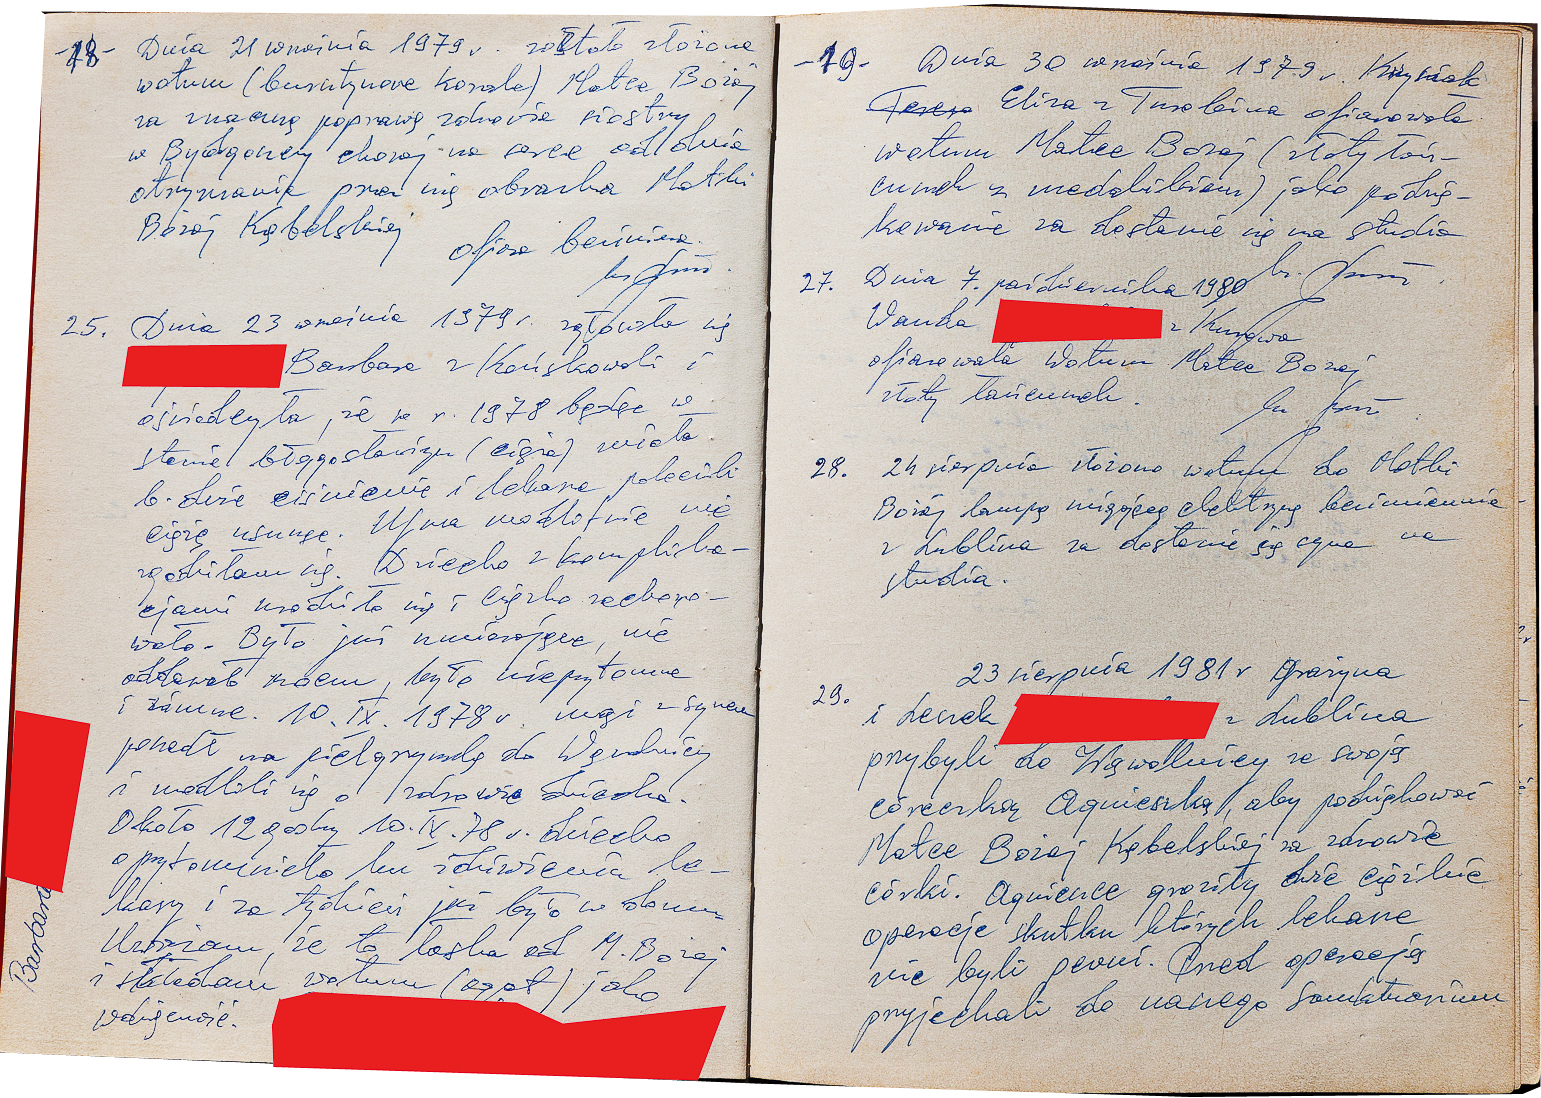 -18- Dnia 21 września 1979 r. zostało złożone
wotum (bursztynowe korale) Matce Bożej
za znaczną poprawę zdrowia siostry
w Bydgoszczy chorej na serce od dnia
otrzymania przez nią obrazka Matki
Bożej Kębelskiej
ofiara bezimienna.
25. Dnia 23 września 1979 r. zgłosiła się
Barbara z Końskowoli i
oświadczyła, że w r. 1978 będąc w
stanie błogosławionym (ciąża) miała
b. duże ciśnienie i lekarze polecili
ciążę usunąć. Ufna modlitwie nie
zgodziłam się. Dziecko z komplika-
cjami urodziło się i ciężko zachoro-
wało. Było już umierające, nie
oddawał moczu, było nieprzytomne
i zimne. 10.IX.1978 r. mąż z synem
poszedł na pielgrzymkę do Wąwolnicy
i modlili się o zdrowie dziecka.
Około 12 godziny 10.IX.78 r. dziecko
oprzytomniało ku zdziwieniu le-
karzy i za tydzień już było w domu.
Uważam, że to łaska od M. Bożej
i składam wotum (agat) jako
wdzięczność.
Barbara
-19- Dnia 30 września 1979 r. Krzysiak
Teresa Eliza z Turobina ofiarowała
wotum Matce Bożej (złoty łań-
cuszek z medalikiem) jako podzię-
kowanie za dostanie się na studia
27. Dnia 7. października 1980
Wanda z Kurowa
ofiarowała wotum Matce Bożej
złoty łańcuszek.
28. 24 sierpnia złożono wotum do Matki
Bożej lampę migającą elektryczną bezimiennie
z Lublina za dostanie się syna na
studia.
23 sierpnia 1981 r Grażyna
29. i Leszek z Lublina
przybyli do Wąwolnicy ze swoją
córeczką Agnieszką, aby podziękować
Matce Bożej Kębelskiej za zdrowie
córki. Agnieszce groziły dwie ciężkie
operacje skutku których lekarze
nie byli pewni. Przed operacją
przyjechali do naszego Sanktuarium